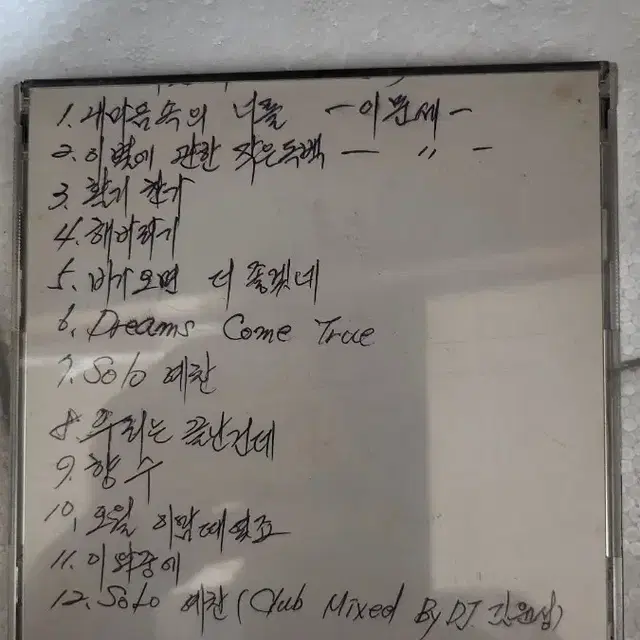 1. 내마음속의 너를 - 이문세 -
2. 이별에 관한 작은독백 - 〃 -
3. 환기 찬가
4. 해바라기
5. 비가오면 더 좋겠네
6. Dreams Come True
7. Solo 예찬
8. 우리는 끝난건데
9. 향수
10. 오월 이맘때였죠
11. 이 와중에
12. Solo 예찬 (Club Mixed By DJ.